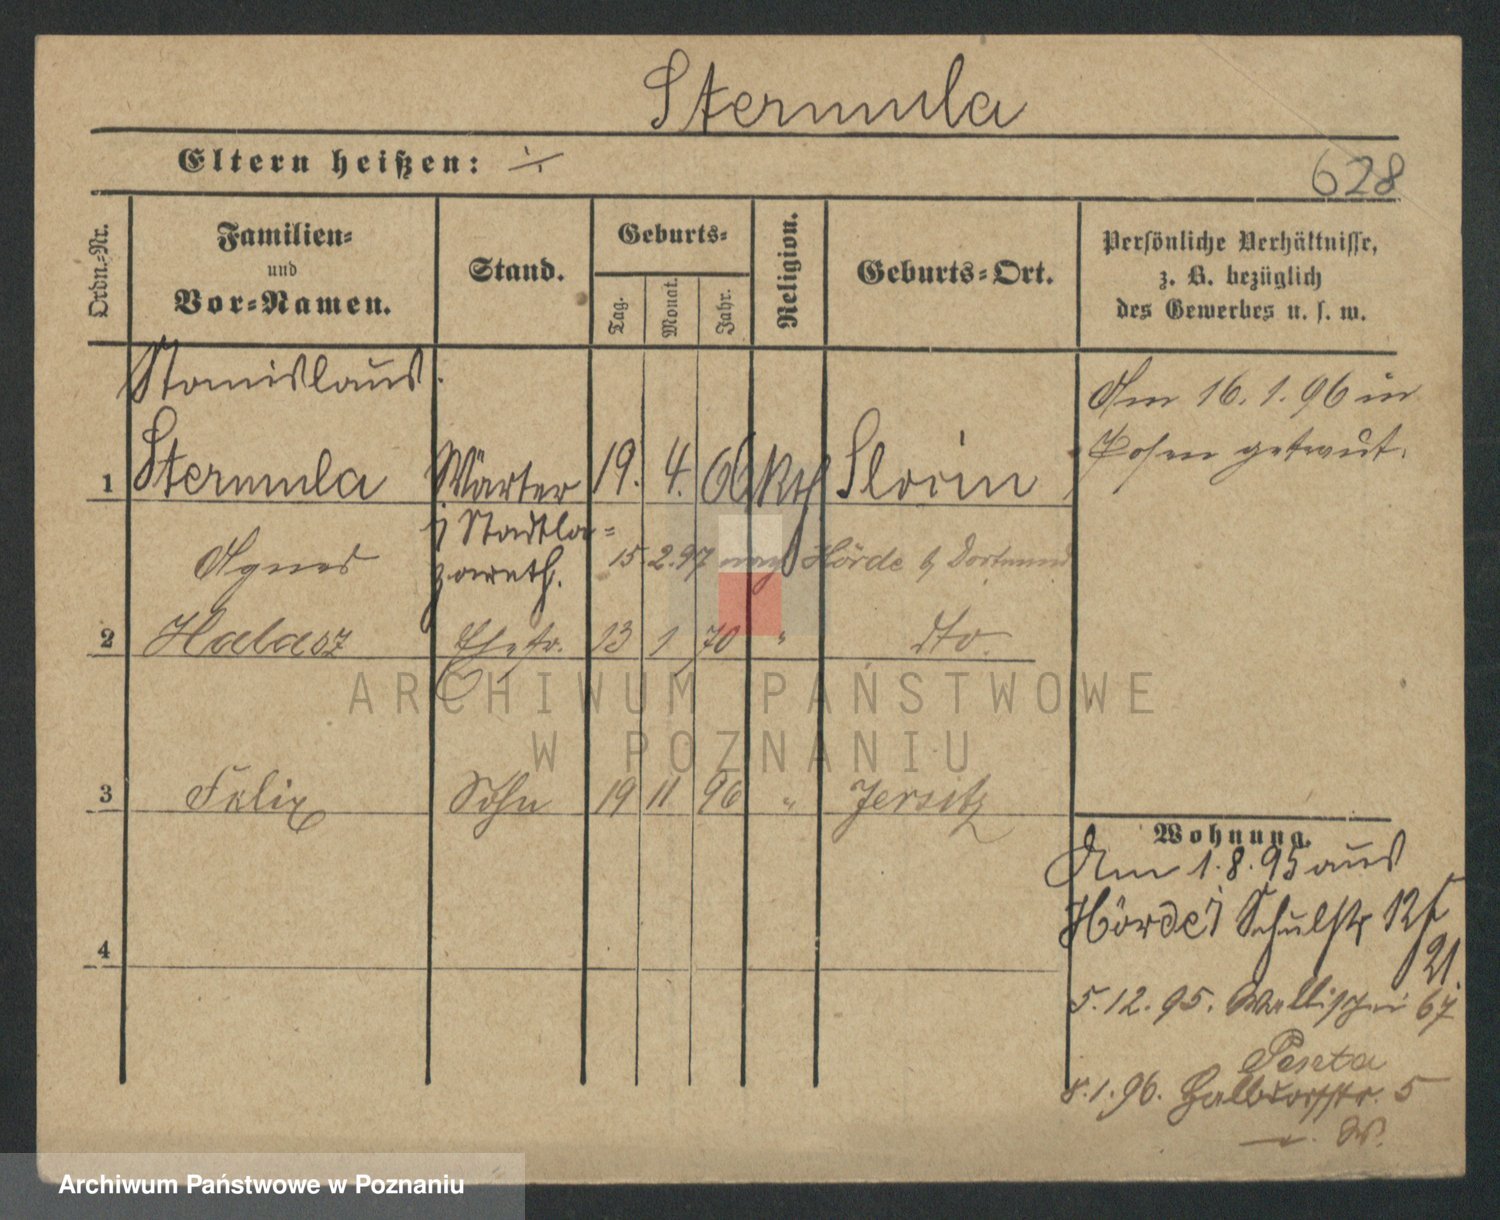 Stermula
Eltern heißen: ·/·
628
Ordn.-Nr.
Familien- und Vor-Namen.
Stand.
Geburts-
Tag. Monat. Jahr.
Religion.
Geburts-Ort.
Persönliche Verhältnisse,
z. B. bezüglich
des Gewerbes u. s. w.
Stanislaus
1 Stermula Wärter 19. 4. 66 kth Slocin
i/ Stadtla-
zareth.
Am 16.1.96 in
Posen getraut.
Agnes 15 2.97 Hörde b/ Dortmund
2 Halasz Ehefr. 13 1 70 " dto.
3 Felix Sohn 19 11 96 " Jersitz
4
Wohnung.
Am 1.8.95 aus
Hörde i/ Schulstr 12
21.
5.12.95. Wallischei 67
Peseta
8.1.96. Halbdorfstr. 5
W.
ARCHIWUM PAŃSTWOWE
W POZNANIU
Archiwum Państwowe w Poznaniu